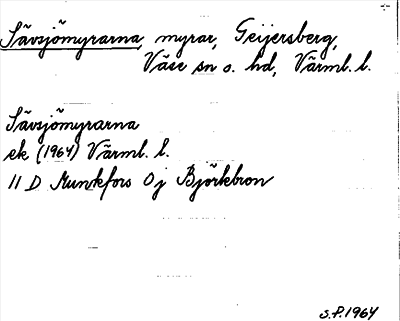 Sävsjömyrarna, myrar, Geijersberg,
Väse sn o. hd, Värml. l.
Sävsjömyrarna
ek (1964) Värml. l.
11 D Munkfors 0 j Björkbron
S.P. 1964